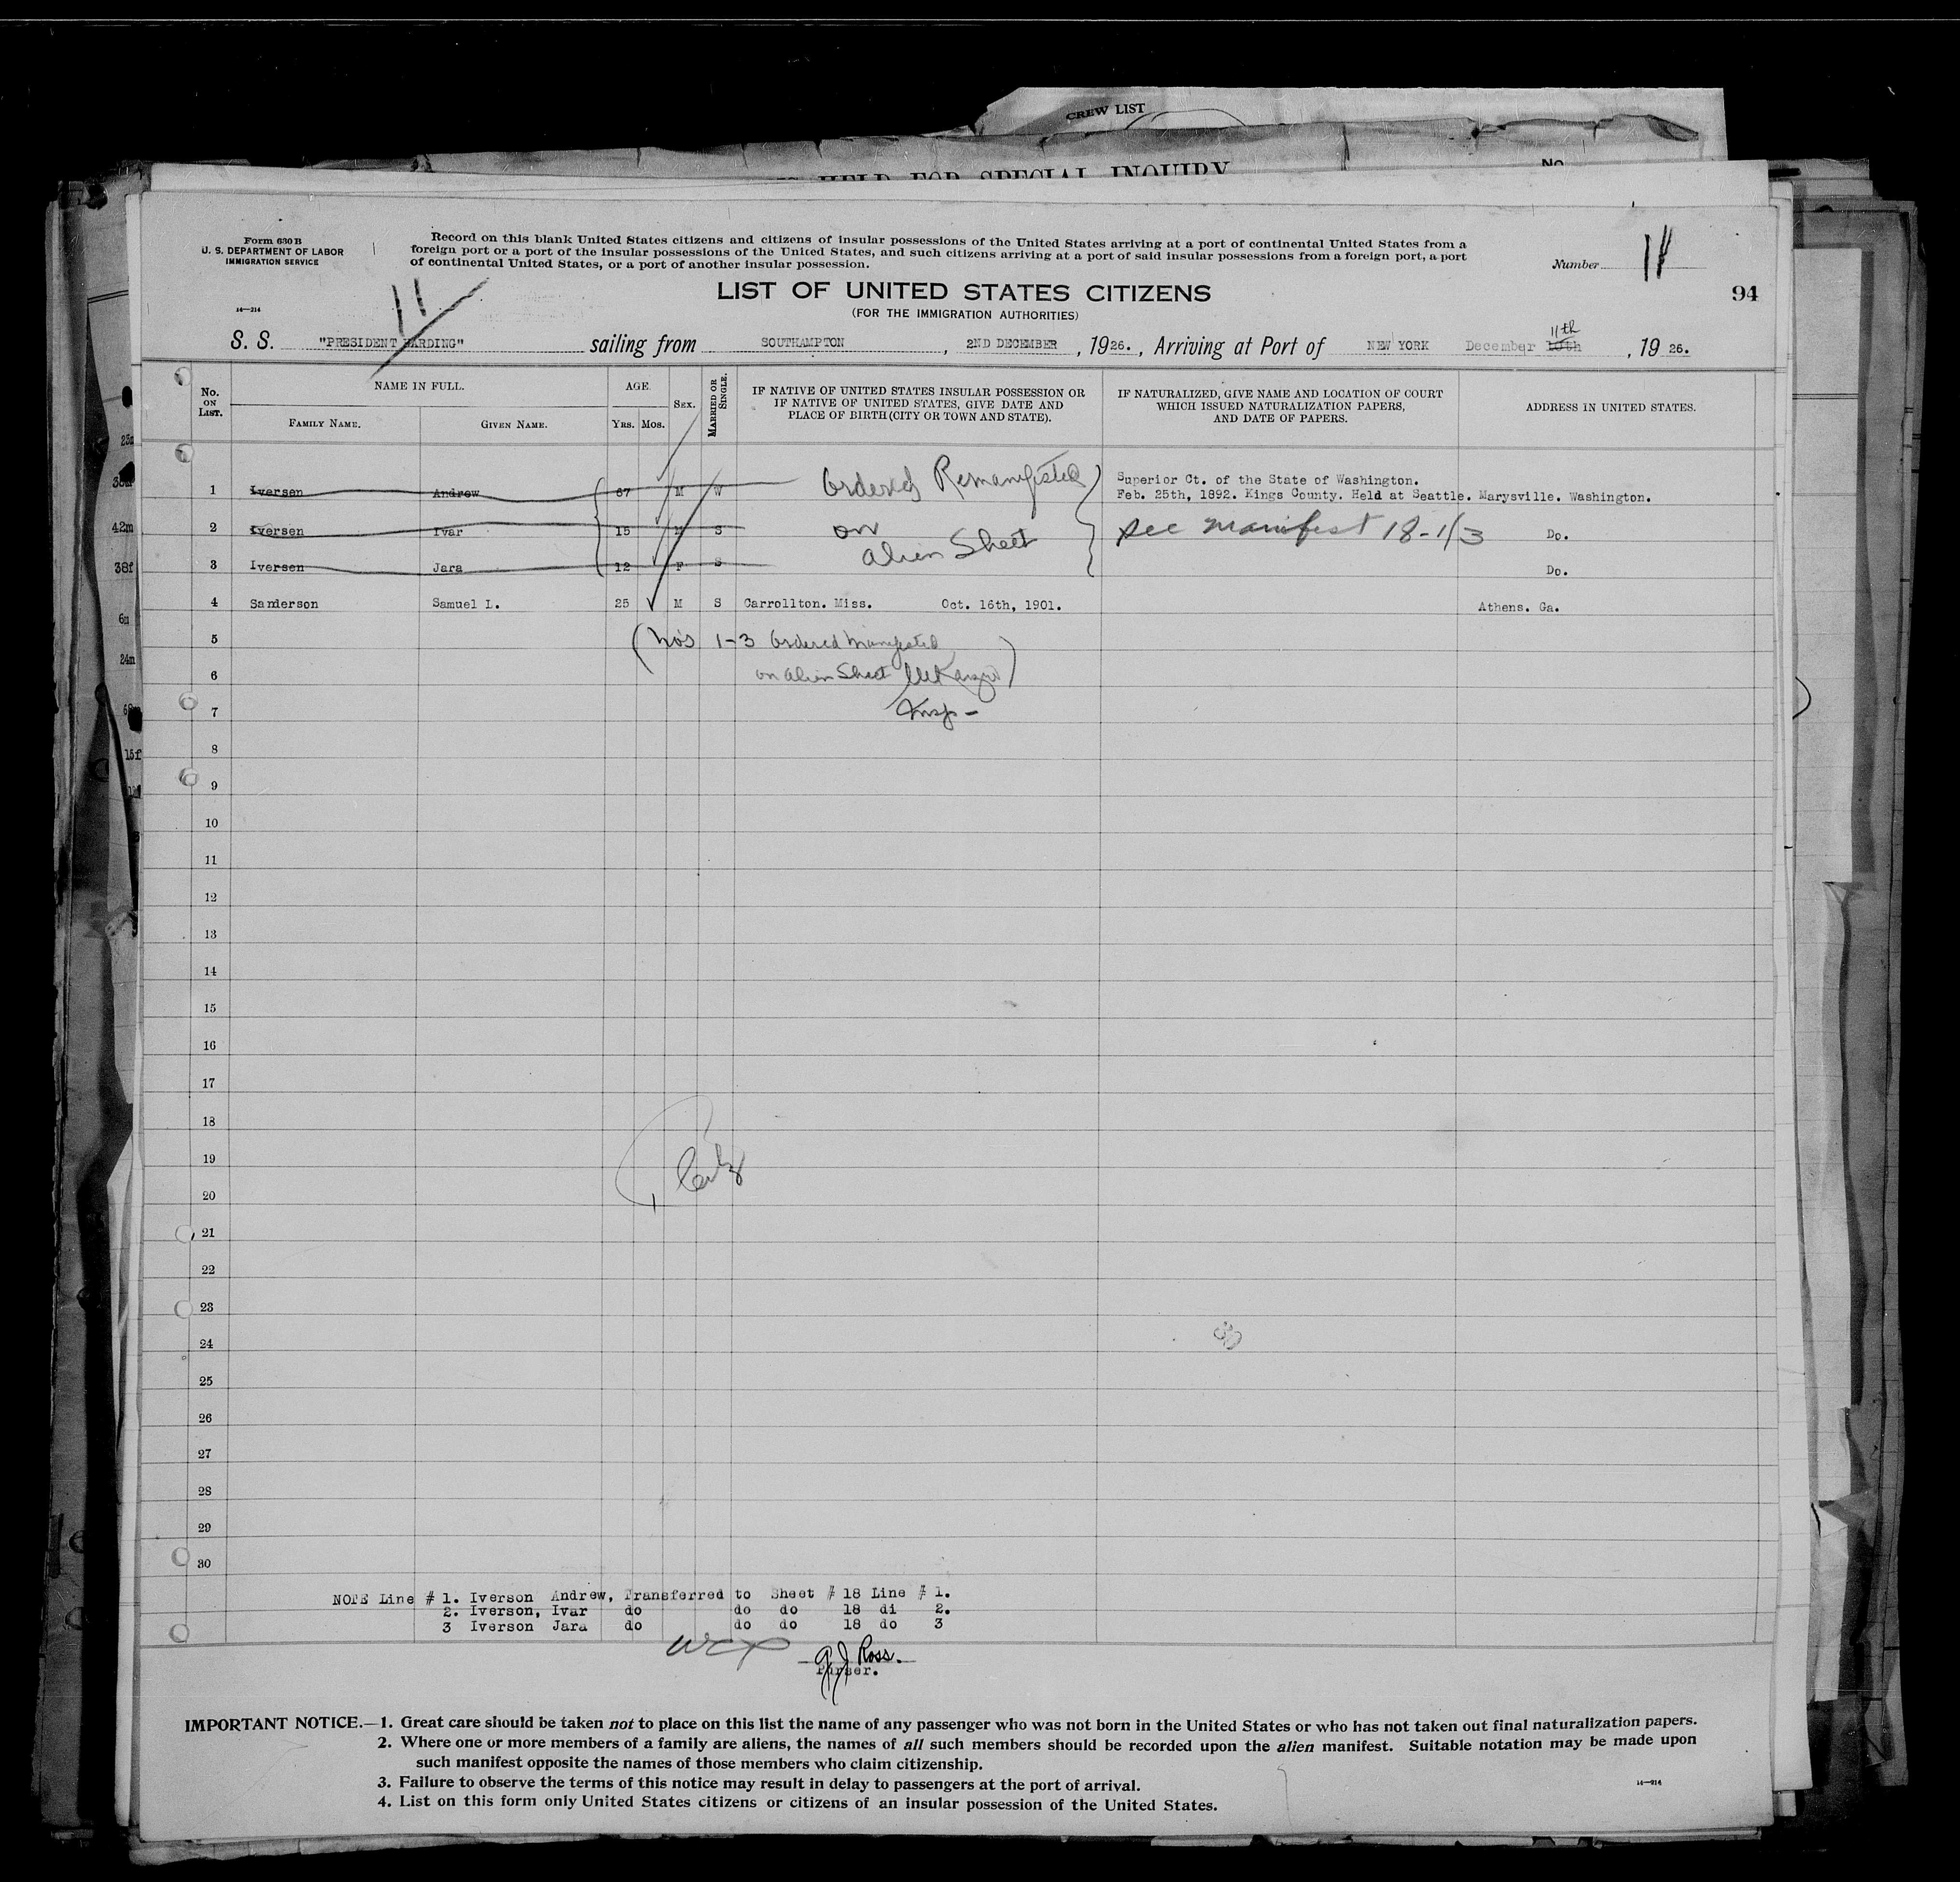 CREW LIST
HELD FOR SPECIAL INQUIRY
No.
Form 630 B
U. S. DEPARTMENT OF LABOR
IMMIGRATION SERVICE
Record on this blank United States citizens and citizens of insular possessions of the United States arriving at a port of continental United States from a
foreign port or a port of the insular possessions of the United States, and such citizens arriving at a port of said insular possessions from a foreign port, a port
of continental United States, or a port of another insular possession.
Number
11
14—214
LIST OF UNITED STATES CITIZENS
94
(FOR THE IMMIGRATION AUTHORITIES)
S. S. "PRESIDENT HARDING" sailing from SOUTHAMPTON, 2ND DECEMBER, 1926., Arriving at Port of NEW YORK December 10th 11th, 1926.
No. ON LIST. NAME IN FULL. AGE. SEX. MARRIED OR SINGLE. IF NATIVE OF UNITED STATES INSULAR POSSESSION OR IF NATIVE OF UNITED STATES, GIVE DATE AND PLACE OF BIRTH (CITY OR TOWN AND STATE). IF NATURALIZED, GIVE NAME AND LOCATION OF COURT WHICH ISSUED NATURALIZATION PAPERS, AND DATE OF PAPERS. ADDRESS IN UNITED STATES.
FAMILY NAME. GIVEN NAME. YRS. MOS.
Superior Ct. of the State of Washington.
1 Iversen Andrew 67 M W Ordered Remanifested Feb. 25th, 1892. Kings County. Held at Seattle. Marysville. Washington.
2 Iversen Ivar 15 M S on see manifest 18-1/3 Do.
3 Iversen Jara 12 F S alien Sheet Do.
4 Sanderson Samuel L. 25 M S Carrollton. Miss. Oct. 16th, 1901. Athens. Ga.
5 (No's 1-3 Ordered manifested
6 on alien Sheet
7 Insp-
8
9
10
11
12
13
14
15
16
17
18
19
20
21
22
23
24
25
26
27
28
29
30
NOTE Line # 1. Iverson Andrew, Transferred to Sheet # 18 Line # 1.
2. Iverson, Ivar do do do 18 di 2.
3 Iverson Jara do do do 18 do 3
Ross.
Purser.
IMPORTANT NOTICE.—1. Great care should be taken not to place on this list the name of any passenger who was not born in the United States or who has not taken out final naturalization papers.
2. Where one or more members of a family are aliens, the names of all such members should be recorded upon the alien manifest. Suitable notation may be made upon
such manifest opposite the names of those members who claim citizenship.
3. Failure to observe the terms of this notice may result in delay to passengers at the port of arrival.
14—214
4. List on this form only United States citizens or citizens of an insular possession of the United States.